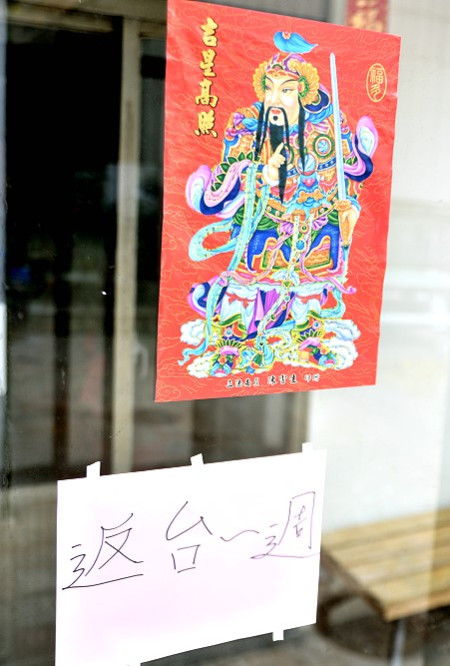 吉星高照
返台一週